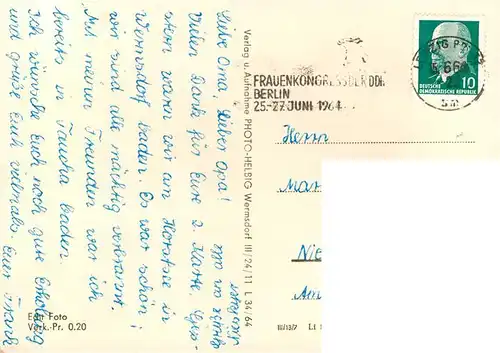 Liebe Oma, lieber Opa!
Vielen Dank für Eure 2. Karte. Ges-
tern waren wir am Horstsee in
Wermsdorf baden. Es war schön!
wir sind alle mächtig verbrannt.
Mit meinen Freunden war ich
bereits in Taucha baden.
Ich wünsche Euch noch gute Erholung
und grüße Euch vielmals. Euer Frank
Echt Foto
Verk.-Pr. 0.20
Verlag u. Aufnahme PHOTO-HELBIG Wermsdorf III/24/11 L 34/64
FRAUENKONGRESS DER DDR
BERLIN
25.-27. JUNI 1964
DEUTSCHE
DEMOKRATISCHE REPUBLIK
10
Herrn
Mar
Nie
Am
III/13/7